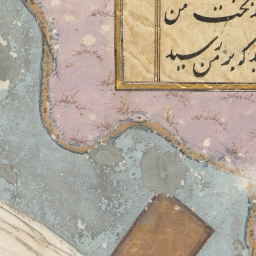 بخت من
که بر من رسید